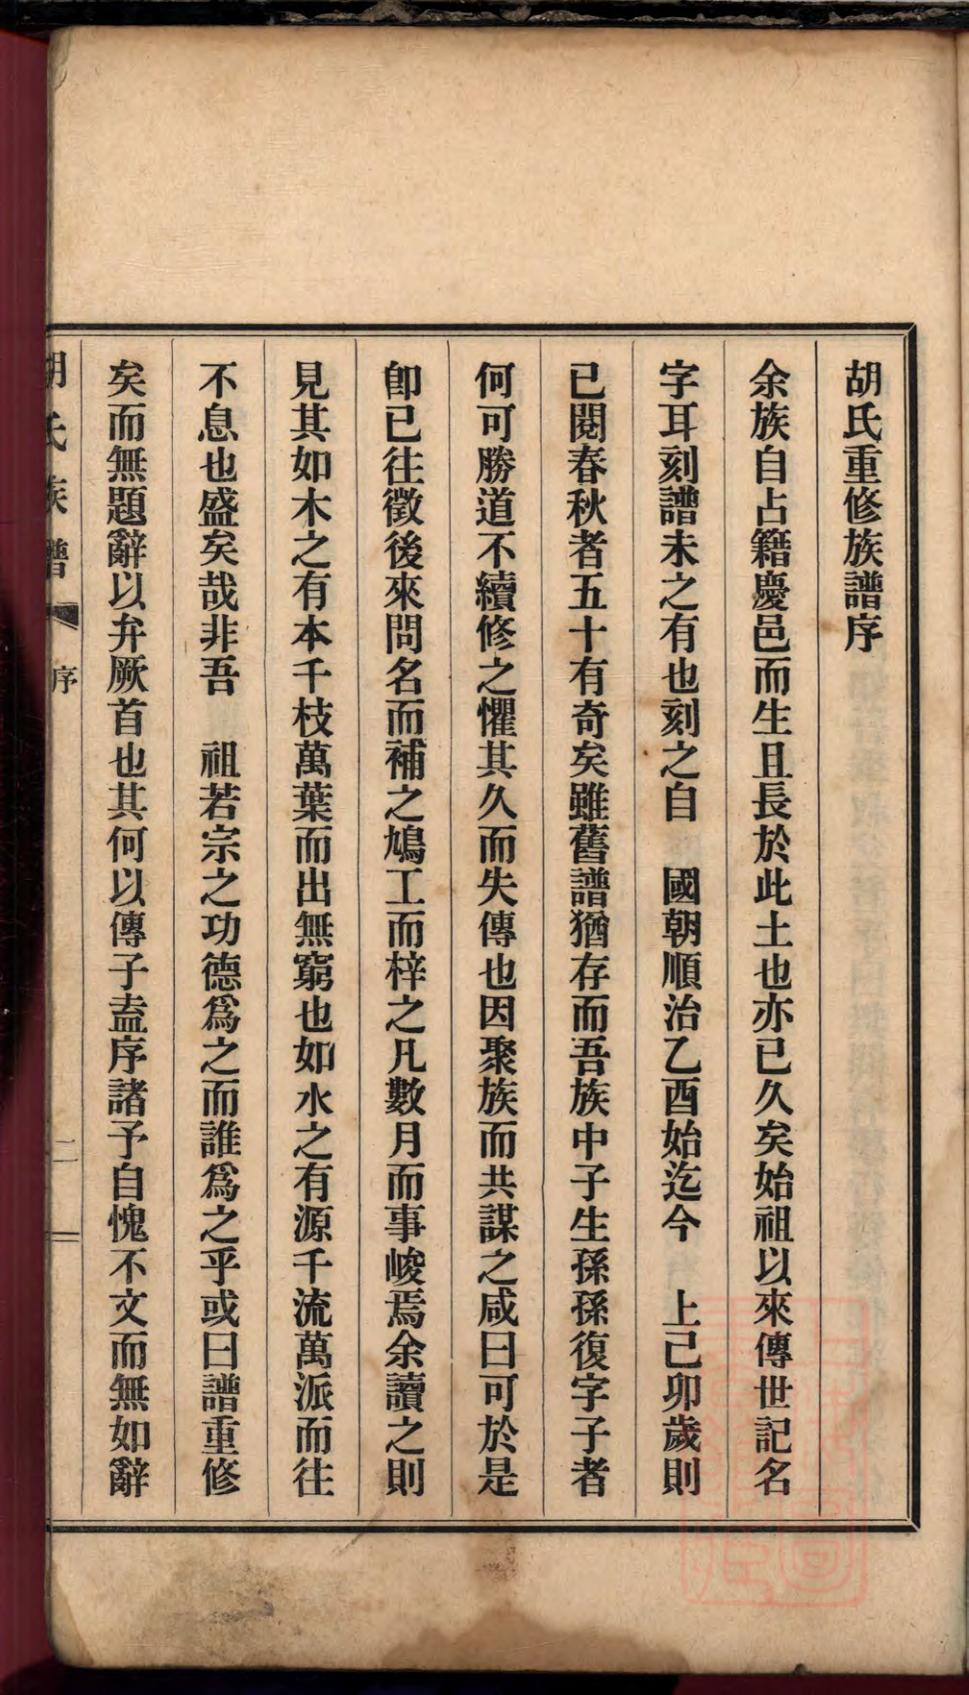 胡氏重修族譜序
余族自占籍慶邑而生且長於此土也亦已久矣始祖以來傳世記名
字耳刻譜未之有也刻之自　國朝順治乙酉始迄今　上己卯歲則
已閱春秋者五十有奇矣雖舊譜猶存而吾族中子生孫孫復字子者
何可勝道不續修之懼其久而失傳也因聚族而共謀之咸曰可於是
卽已往徵後來問名而補之鳩工而梓之凡數月而事峻焉余讀之則
見其如木之有本千枝萬葉而出無窮也如水之有源千流萬派而往
不息也盛矣哉非吾　祖若宗之功德爲之而誰爲之乎或曰譜重修
矣而無題辭以弁厥首也其何以傳子盍序諸予自愧不文而無如辭
胡氏族譜　序　二